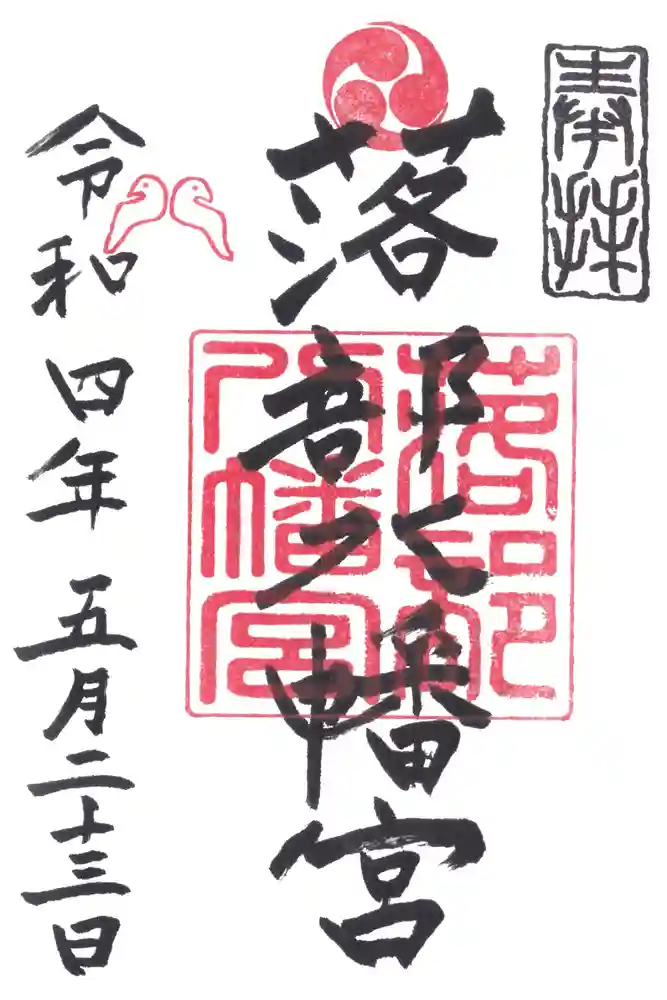 奉拝
落部八幡宮
落部八幡宮
令和四年五月二十三日